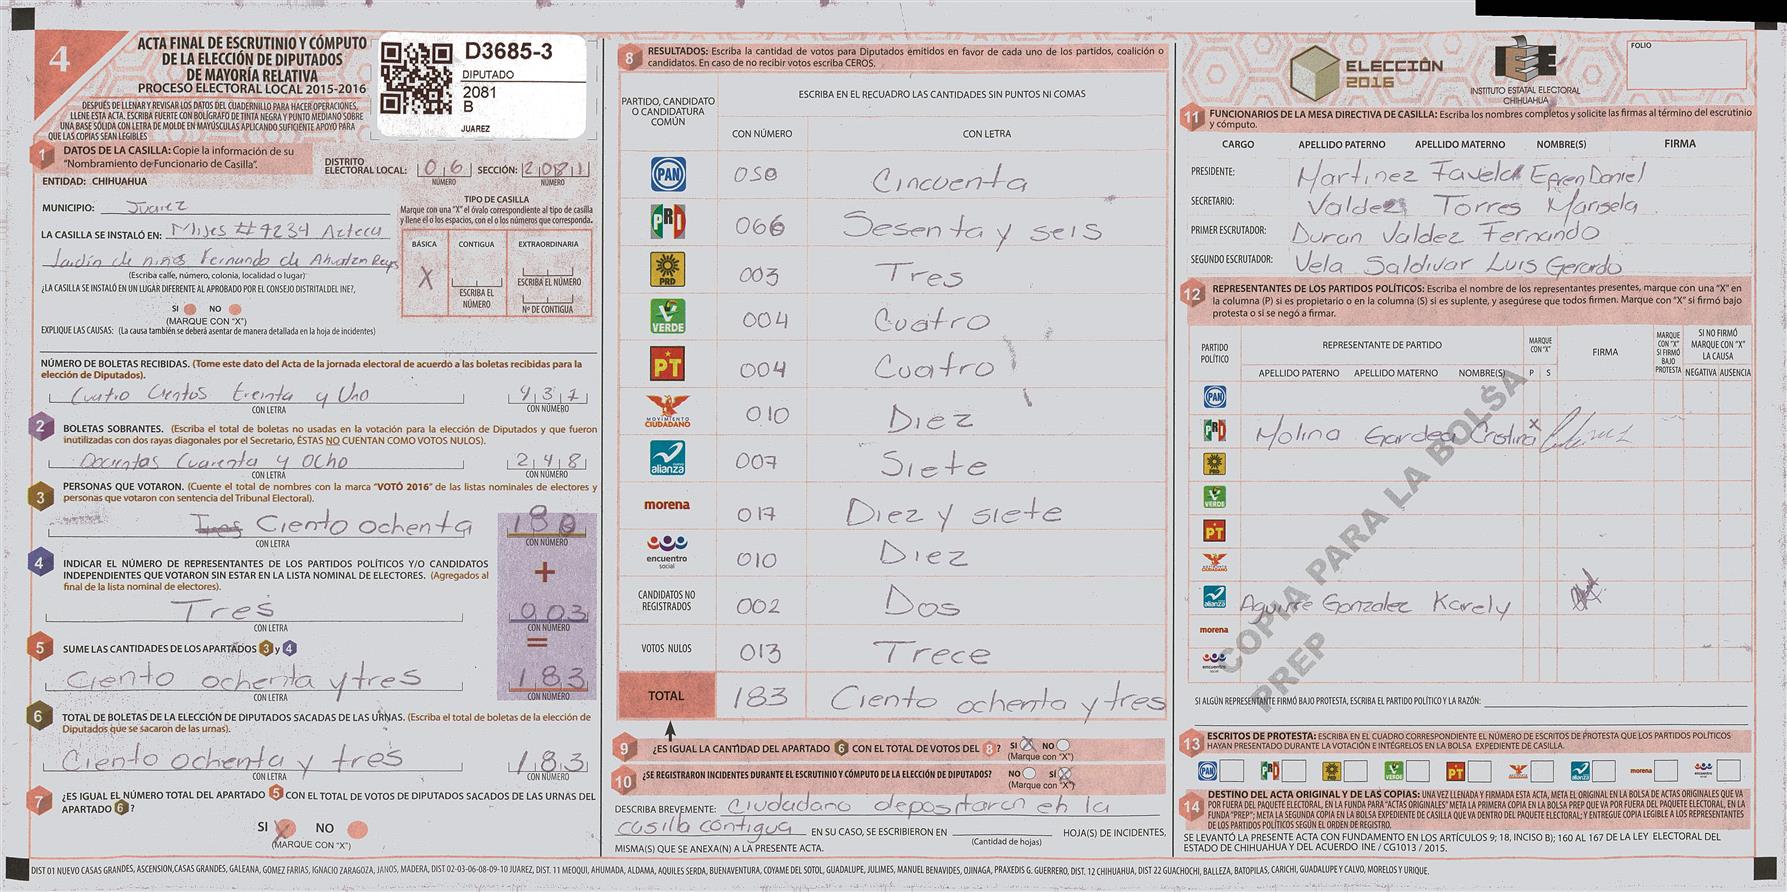 4
ACTA FINAL DE ESCRUTINIO Y CÓMPUTO
DE LA ELECCIÓN DE DIPUTADOS
DE MAYORÍA RELATIVA
PROCESO ELECTORAL LOCAL 2015-2016
DESPUÉS DE LLENAR Y REVISAR LOS DATOS DEL CUADERNILLO PARA HACER OPERACIONES,
LLENE ESTA ACTA. ESCRIBA FUERTE CON BOLÍGRAFO DE TINTA NEGRA Y PUNTO MEDIANO SOBRE
UNA BASE SÓLIDA CON LETRA DE MOLDE EN MAYÚSCULAS APLICANDO SUFICIENTE APOYO PARA
QUE LAS COPIAS SEAN LEGIBLES
D3685-3
DIPUTADO
2081
B
JUAREZ
1 DATOS DE LA CASILLA: Copie la información de su
"Nombramiento de Funcionario de Casilla".
DISTRITO
ELECTORAL LOCAL: 06 SECCIÓN: 2081
NÚMERO NÚMERO
ENTIDAD: CHIHUAHUA
MUNICIPIO: Juarez
LA CASILLA SE INSTALÓ EN: Mijes #7234 Azteca
Jardin de niños Fernando de
(Escriba calle, número, colonia, localidad o lugar)
¿LA CASILLA SE INSTALÓ EN UN LUGAR DIFERENTE AL APROBADO POR EL CONSEJO DISTRITAL DEL INE?,
SI NO
(MARQUE CON "X")
EXPLIQUE LAS CAUSAS: (La causa también se deberá asentar de manera detallada en la hoja de incidentes)
TIPO DE CASILLA
Marque con una "X" el óvalo correspondiente al tipo de casilla
y llene el o los espacios, con el o los números que corresponda.
BÁSICA CONTIGUA EXTRAORDINARIA
X
ESCRIBA EL NÚMERO
ESCRIBA EL NÚMERO
Nº DE CONTIGUA
NÚMERO DE BOLETAS RECIBIDAS. (Tome este dato del Acta de la jornada electoral de acuerdo a las boletas recibidas para la
elección de Diputados).
Cuatro Cientos treinta y Uno 431
CON LETRA CON NÚMERO
2 BOLETAS SOBRANTES. (Escriba el total de boletas no usadas en la votación para la elección de Diputados y que fueron
inutilizadas con dos rayas diagonales por el Secretario, ÉSTAS NO CUENTAN COMO VOTOS NULOS).
Docientas Cuarenta y Ocho 248
CON LETRA CON NÚMERO
3 PERSONAS QUE VOTARON. (Cuente el total de nombres con la marca "VOTÓ 2016" de las listas nominales de electores y
personas que votaron con sentencia del Tribunal Electoral).
Tres Ciento ochenta 180
CON LETRA CON NÚMERO
+
4 INDICAR EL NÚMERO DE REPRESENTANTES DE LOS PARTIDOS POLÍTICOS Y/O CANDIDATOS
INDEPENDIENTES QUE VOTARON SIN ESTAR EN LA LISTA NOMINAL DE ELECTORES. (Agregados al
final de la lista nominal de electores).
Tres 003
CON LETRA CON NÚMERO
=
5 SUME LAS CANTIDADES DE LOS APARTADOS 3 y 4
Ciento ochenta y tres 183
CON LETRA CON NÚMERO
6 TOTAL DE BOLETAS DE LA ELECCIÓN DE DIPUTADOS SACADAS DE LAS URNAS. (Escriba el total de boletas de la elección de
Diputados que se sacaron de las urnas).
Ciento ochenta y tres 183
CON LETRA CON NÚMERO
7 ¿ES IGUAL EL NÚMERO TOTAL DEL APARTADO 5 CON EL TOTAL DE VOTOS DE DIPUTADOS SACADOS DE LAS URNAS DEL
APARTADO 6?
SI X NO
(MARQUE CON "X")
8 RESULTADOS: Escriba la cantidad de votos para Diputados emitidos en favor de cada uno de los partidos, coalición o
candidatos. En caso de no recibir votos escriba CEROS.
PARTIDO, CANDIDATO
O CANDIDATURA
COMÚN
ESCRIBA EN EL RECUADRO LAS CANTIDADES SIN PUNTOS NI COMAS
CON NÚMERO CON LETRA
PAN 050 Cincuenta
PRI 066 Sesenta y seis
PRD 003 Tres
VERDE 004 Cuatro
PT 004 Cuatro
MOVIMIENTO CIUDADANO 010 Diez
alianza 007 Siete
morena 017 Diez y siete
encuentro social 010 Diez
CANDIDATOS NO
REGISTRADOS 002 Dos
VOTOS NULOS 013 Trece
TOTAL 183 Ciento ochenta y tres
9 ¿ES IGUAL LA CANTIDAD DEL APARTADO 6 CON EL TOTAL DE VOTOS DEL 8? SI X NO
(Marque con "X")
10 ¿SE REGISTRARON INCIDENTES DURANTE EL ESCRUTINIO Y CÓMPUTO DE LA ELECCIÓN DE DIPUTADOS? NO SÍ X
(Marque con "X")
DESCRIBA BREVEMENTE: Ciudadano depositaron en la
casilla contigua EN SU CASO, SE ESCRIBIERON EN HOJA(S) DE INCIDENTES,
(Cantidad de hojas)
MISMA(S) QUE SE ANEXA(N) A LA PRESENTE ACTA.
ELECCIÓN
2016
IEE
INSTITUTO ESTATAL ELECTORAL
CHIHUAHUA
FOLIO
11 FUNCIONARIOS DE LA MESA DIRECTIVA DE CASILLA: Escriba los nombres completos y solicite las firmas al término del escrutinio
y cómputo.
CARGO APELLIDO PATERNO APELLIDO MATERNO NOMBRE(S) FIRMA
PRESIDENTE: Martinez Favela Efren Daniel
SECRETARIO: Valdez Torres Marisela
PRIMER ESCRUTADOR: Duran Valdez Fernando
SEGUNDO ESCRUTADOR: Vela Saldivar Luis Gerardo
12 REPRESENTANTES DE LOS PARTIDOS POLÍTICOS: Escriba el nombre de los representantes presentes, marque con una "X" en
la columna (P) si es propietario o en la columna (S) si es suplente, y asegúrese que todos firmen. Marque con "X" si firmó bajo
protesta o si se negó a firmar.
PARTIDO
POLÍTICO
REPRESENTANTE DE PARTIDO
APELLIDO PATERNO APELLIDO MATERNO NOMBRE(S)
MARQUE
CON "X"
P S
FIRMA
MARQUE
CON "X"
SI FIRMÓ
BAJO
PROTESTA
SI NO FIRMÓ
MARQUE CON "X"
LA CAUSA
NEGATIVA AUSENCIA
PAN
PRI Molina Gardea Cristina X
PRD
VERDE
PT
MOVIMIENTO CIUDADANO
alianza Aguirre Gonzalez Karely
morena
COPIA PARA LA BOLSA
PREP
SI ALGÚN REPRESENTANTE FIRMÓ BAJO PROTESTA, ESCRIBA EL PARTIDO POLÍTICO Y LA RAZÓN:
13 ESCRITOS DE PROTESTA: ESCRIBA EN EL CUADRO CORRESPONDIENTE EL NÚMERO DE ESCRITOS DE PROTESTA QUE LOS PARTIDOS POLÍTICOS
HAYAN PRESENTADO DURANTE LA VOTACIÓN E INTÉGRELOS EN LA BOLSA EXPEDIENTE DE CASILLA.
PAN PRI PRD VERDE PT alianza morena
14 DESTINO DEL ACTA ORIGINAL Y DE LAS COPIAS: UNA VEZ LLENADA Y FIRMADA ESTA ACTA, META EL ORIGINAL EN LA BOLSA DE ACTAS ORIGINALES QUE VA
POR FUERA DEL PAQUETE ELECTORAL, EN LA FUNDA PARA "ACTAS ORIGINALES" META LA PRIMERA COPIA EN LA BOLSA PREP QUE VA POR FUERA DEL PAQUETE ELECTORAL, EN LA
FUNDA "PREP"; META LA SEGUNDA COPIA EN LA BOLSA EXPEDIENTE DE CASILLA QUE VA DENTRO DEL PAQUETE ELECTORAL; Y ENTREGUE COPIA LEGIBLE A LOS REPRESENTANTES
DE LOS PARTIDOS POLÍTICOS SEGÚN EL ORDEN DE REGISTRO.
SE LEVANTÓ LA PRESENTE ACTA CON FUNDAMENTO EN LOS ARTÍCULOS 9; 18, INCISO B); 160 AL 167 DE LA LEY ELECTORAL DEL
ESTADO DE CHIHUAHUA Y DEL ACUERDO INE / CG1013 / 2015.
DIST 01 NUEVO CASAS GRANDES, ASCENSIÓN, CASAS GRANDES, GALEANA, GOMEZ FARIAS, IGNACIO ZARAGOZA, JANOS, MADERA, DIST 02-03-06-08-09-10 JUAREZ, DIST. 11 MEOQUI, AHUMADA, ALDAMA, AQUILES SERDA, BUENAVENTURA, COYAME DEL SOTOL, GUADALUPE, JULIMES, MANUEL BENAVIDES, OJINAGA, PRAXEDIS G. GUERRERO, DIST. 12 CHIHUAHUA, DIST 22 GUACHOCHI, BALLEZA, BATOPILAS, CARICHI, GUADALUPE Y CALVO, MORELOS Y URIQUE.